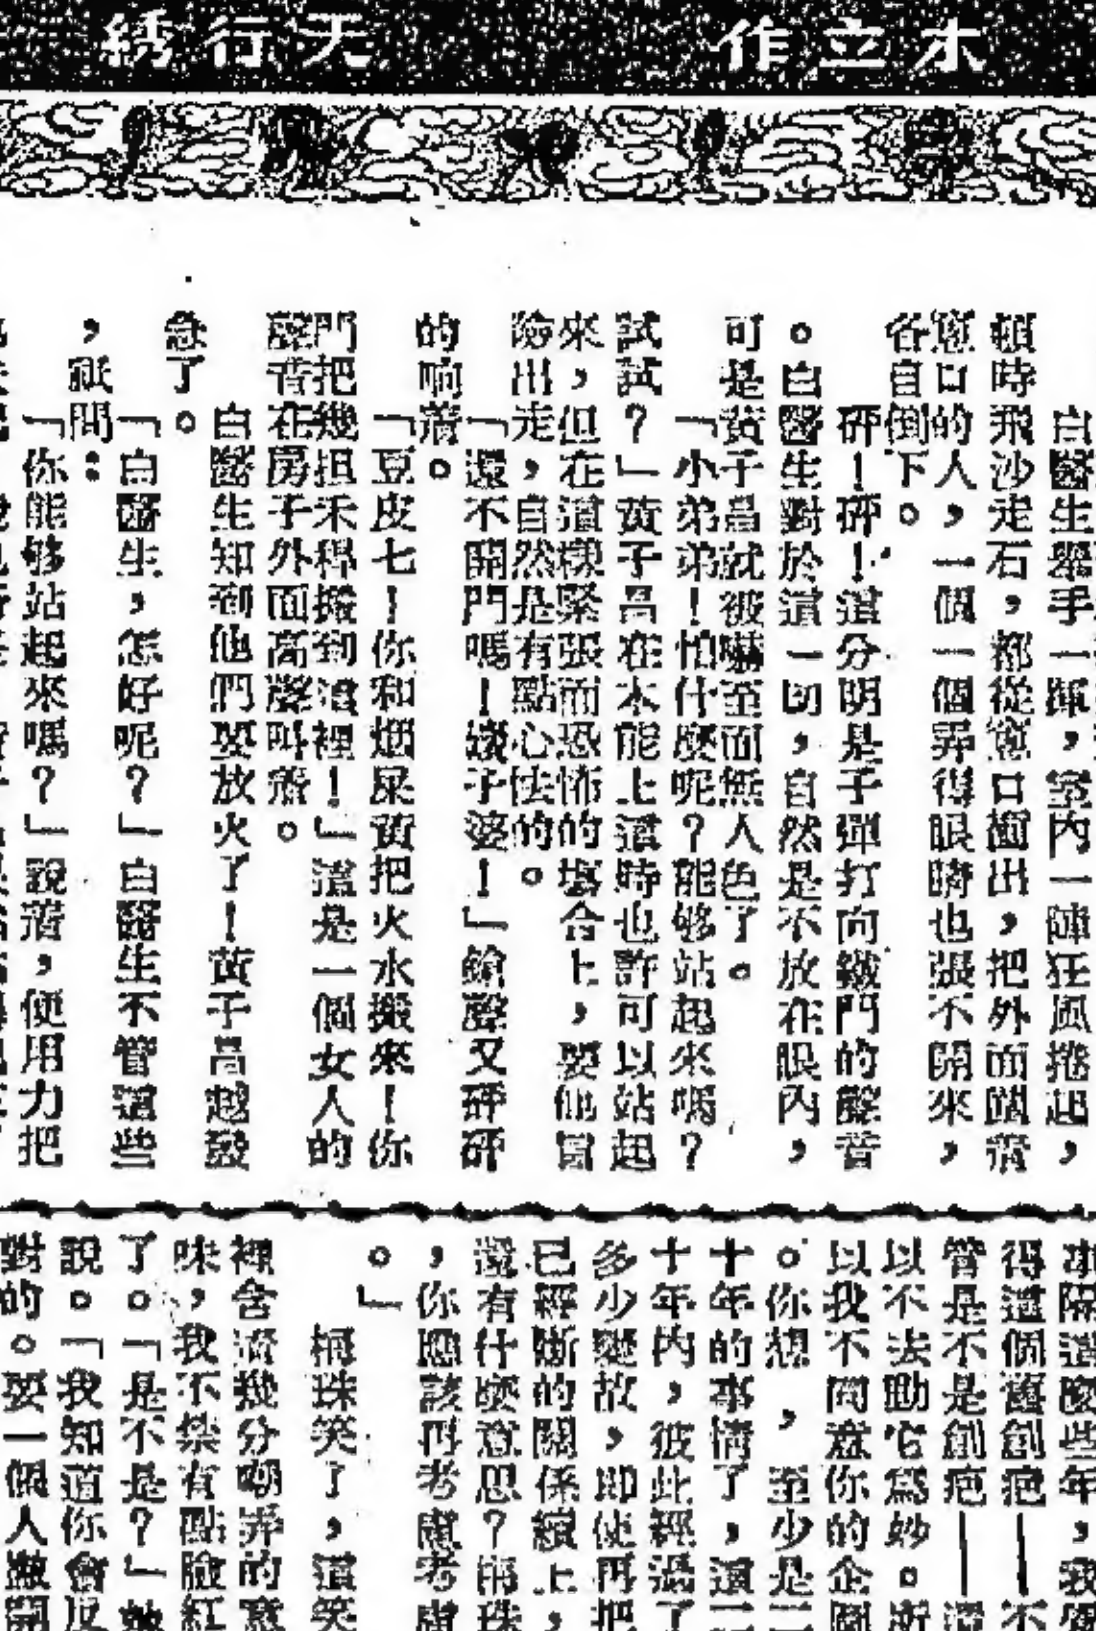 木立作
天行綉
白醫生舉手一揮，室內一陣狂風捲起，
頓時飛沙走石，都從窻口湧出，把外面開着
窻口的人，一個一個弄得眼睛也張不開來，
各自倒下。
砰！砰！這分明是子彈打向鐵門的聲音
。白醫生對於這一切，自然是不放在眼內，
可是黃子昌就被嚇至面無人色了。
「小弟弟！怕什麼呢？能够站起來嗎？
試試？」黃子昌在本能上這時也許可以站起
來，但在這樣緊張而恐怖的場合上，要他冒
險出走，自然是有點心怯的。
「還不開門嗎！婆！」鎗聲又砰砰
的响着。
「豆皮七！你和烟屎黃把火水搬來！你
門把幾担禾稈搬到這裡！」這是一個女人的
聲音在房子外面高聲叫着。
白醫生知到他們要放火了！黃子昌越發
急了。
「白醫生，怎好呢？」白醫生不管這些
，祇問：
「你能够站起來嗎？」說着，便用力把
事隔這麼些年，我
得這個舊創疤——不
管是不是創疤——
以不去動它為妙。所
以我不同意你的企圖
。你想，至少是
十年的事情了，這
十年內，彼此經過了
多少變故，即使再把
已經斷的關係續上，
還有什麼意思？珠
，你應該再考慮考慮
。」
珠笑了，這笑
裡含着幾分嘲弄的意
味，我不禁有點臉紅
了。「是不是？」她
說。「我知道你會反
對的。要一個人撇開